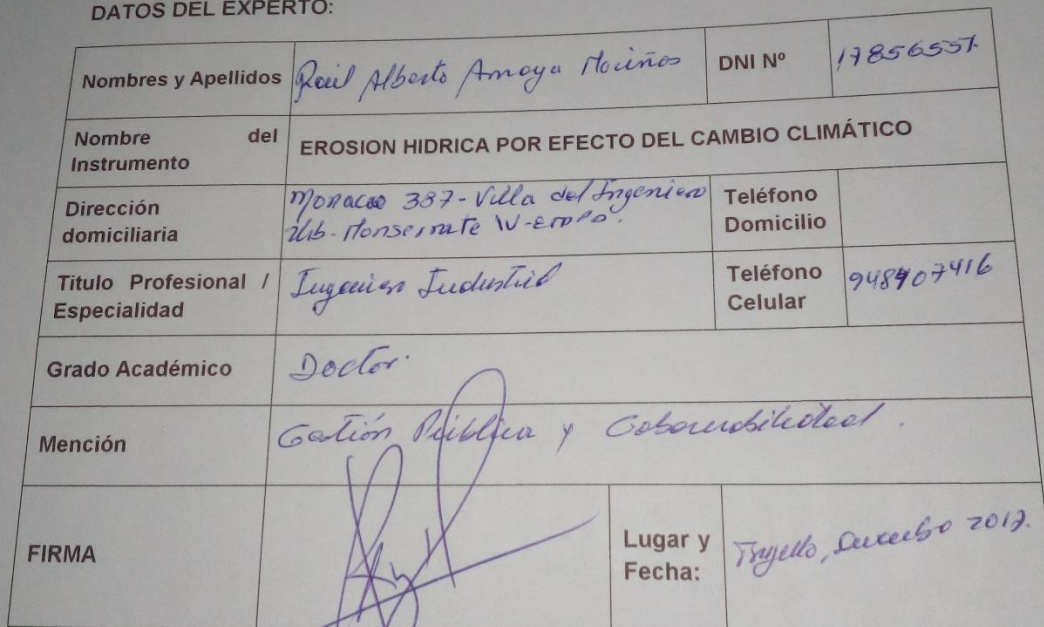 DATOS DEL EXPERTO:
Nombres y Apellidos Raúl Alberto Amaya Mariños DNI Nº 17856551
Nombre del
Instrumento
EROSION HIDRICA POR EFECTO DEL CAMBIO CLIMÁTICO
Dirección
domiciliaria
Monaco 387 - Villa del Ingeniero
Urb. Monserrate IV-
Teléfono
Domicilio
Titulo Profesional /
Especialidad
Ingeniero Industrial
Teléfono
Celular
948907416
Grado Académico Doctor.
Mención Gestión Pública y Gobernabilidad.
FIRMA
Lugar y
Fecha:
Trujillo, Diciembre 2017.